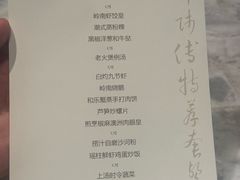 岭南虾饺皇
潮式蒸粉粿
黑椒洋葱和牛哒
老火煲例汤
白灼九节虾
岭南烧鹅
和乐蟹蒸手打肉饼
芦笋炒螺片
煎烹椒麻澳洲肉眼皇
捞汁自磨沙河粉
瑶柱鲜虾鸡蛋炒饭
上汤时令蔬菜
师傅特荐套餐